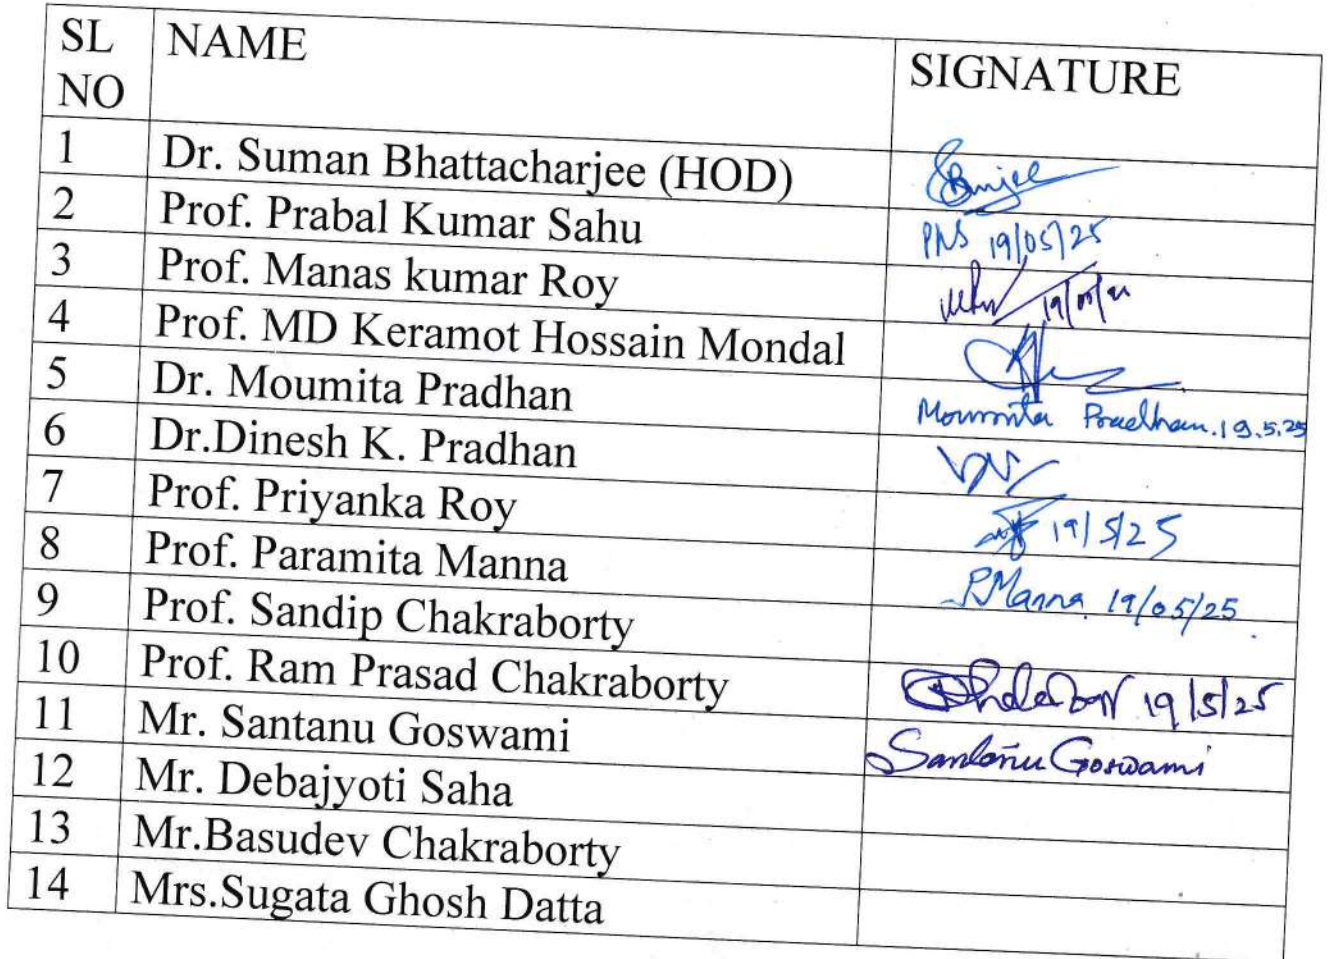 SL NO NAME SIGNATURE
1 Dr. Suman Bhattacharjee (HOD)
2 Prof. Prabal Kumar Sahu PKS 19/05/25
3 Prof. Manas kumar Roy
4 Prof. MD Keramot Hossain Mondal
5 Dr. Moumita Pradhan Moumita Pradhan. 19.5.25
6 Dr.Dinesh K. Pradhan
7 Prof. Priyanka Roy 19/5/25
8 Prof. Paramita Manna PManna 19/05/25
9 Prof. Sandip Chakraborty
10 Prof. Ram Prasad Chakraborty 19/5/25
11 Mr. Santanu Goswami Santanu Goswami
12 Mr. Debajyoti Saha
13 Mr.Basudev Chakraborty
14 Mrs.Sugata Ghosh Datta